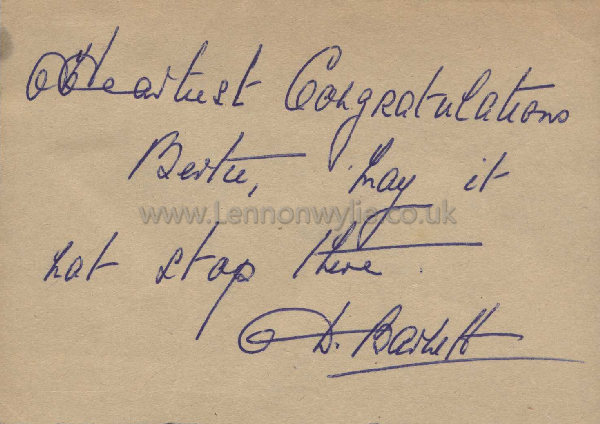 Heartiest Congratulations
Bertie, may it
www.Lennonwylie.co.uk
not stop there
D. Barnett